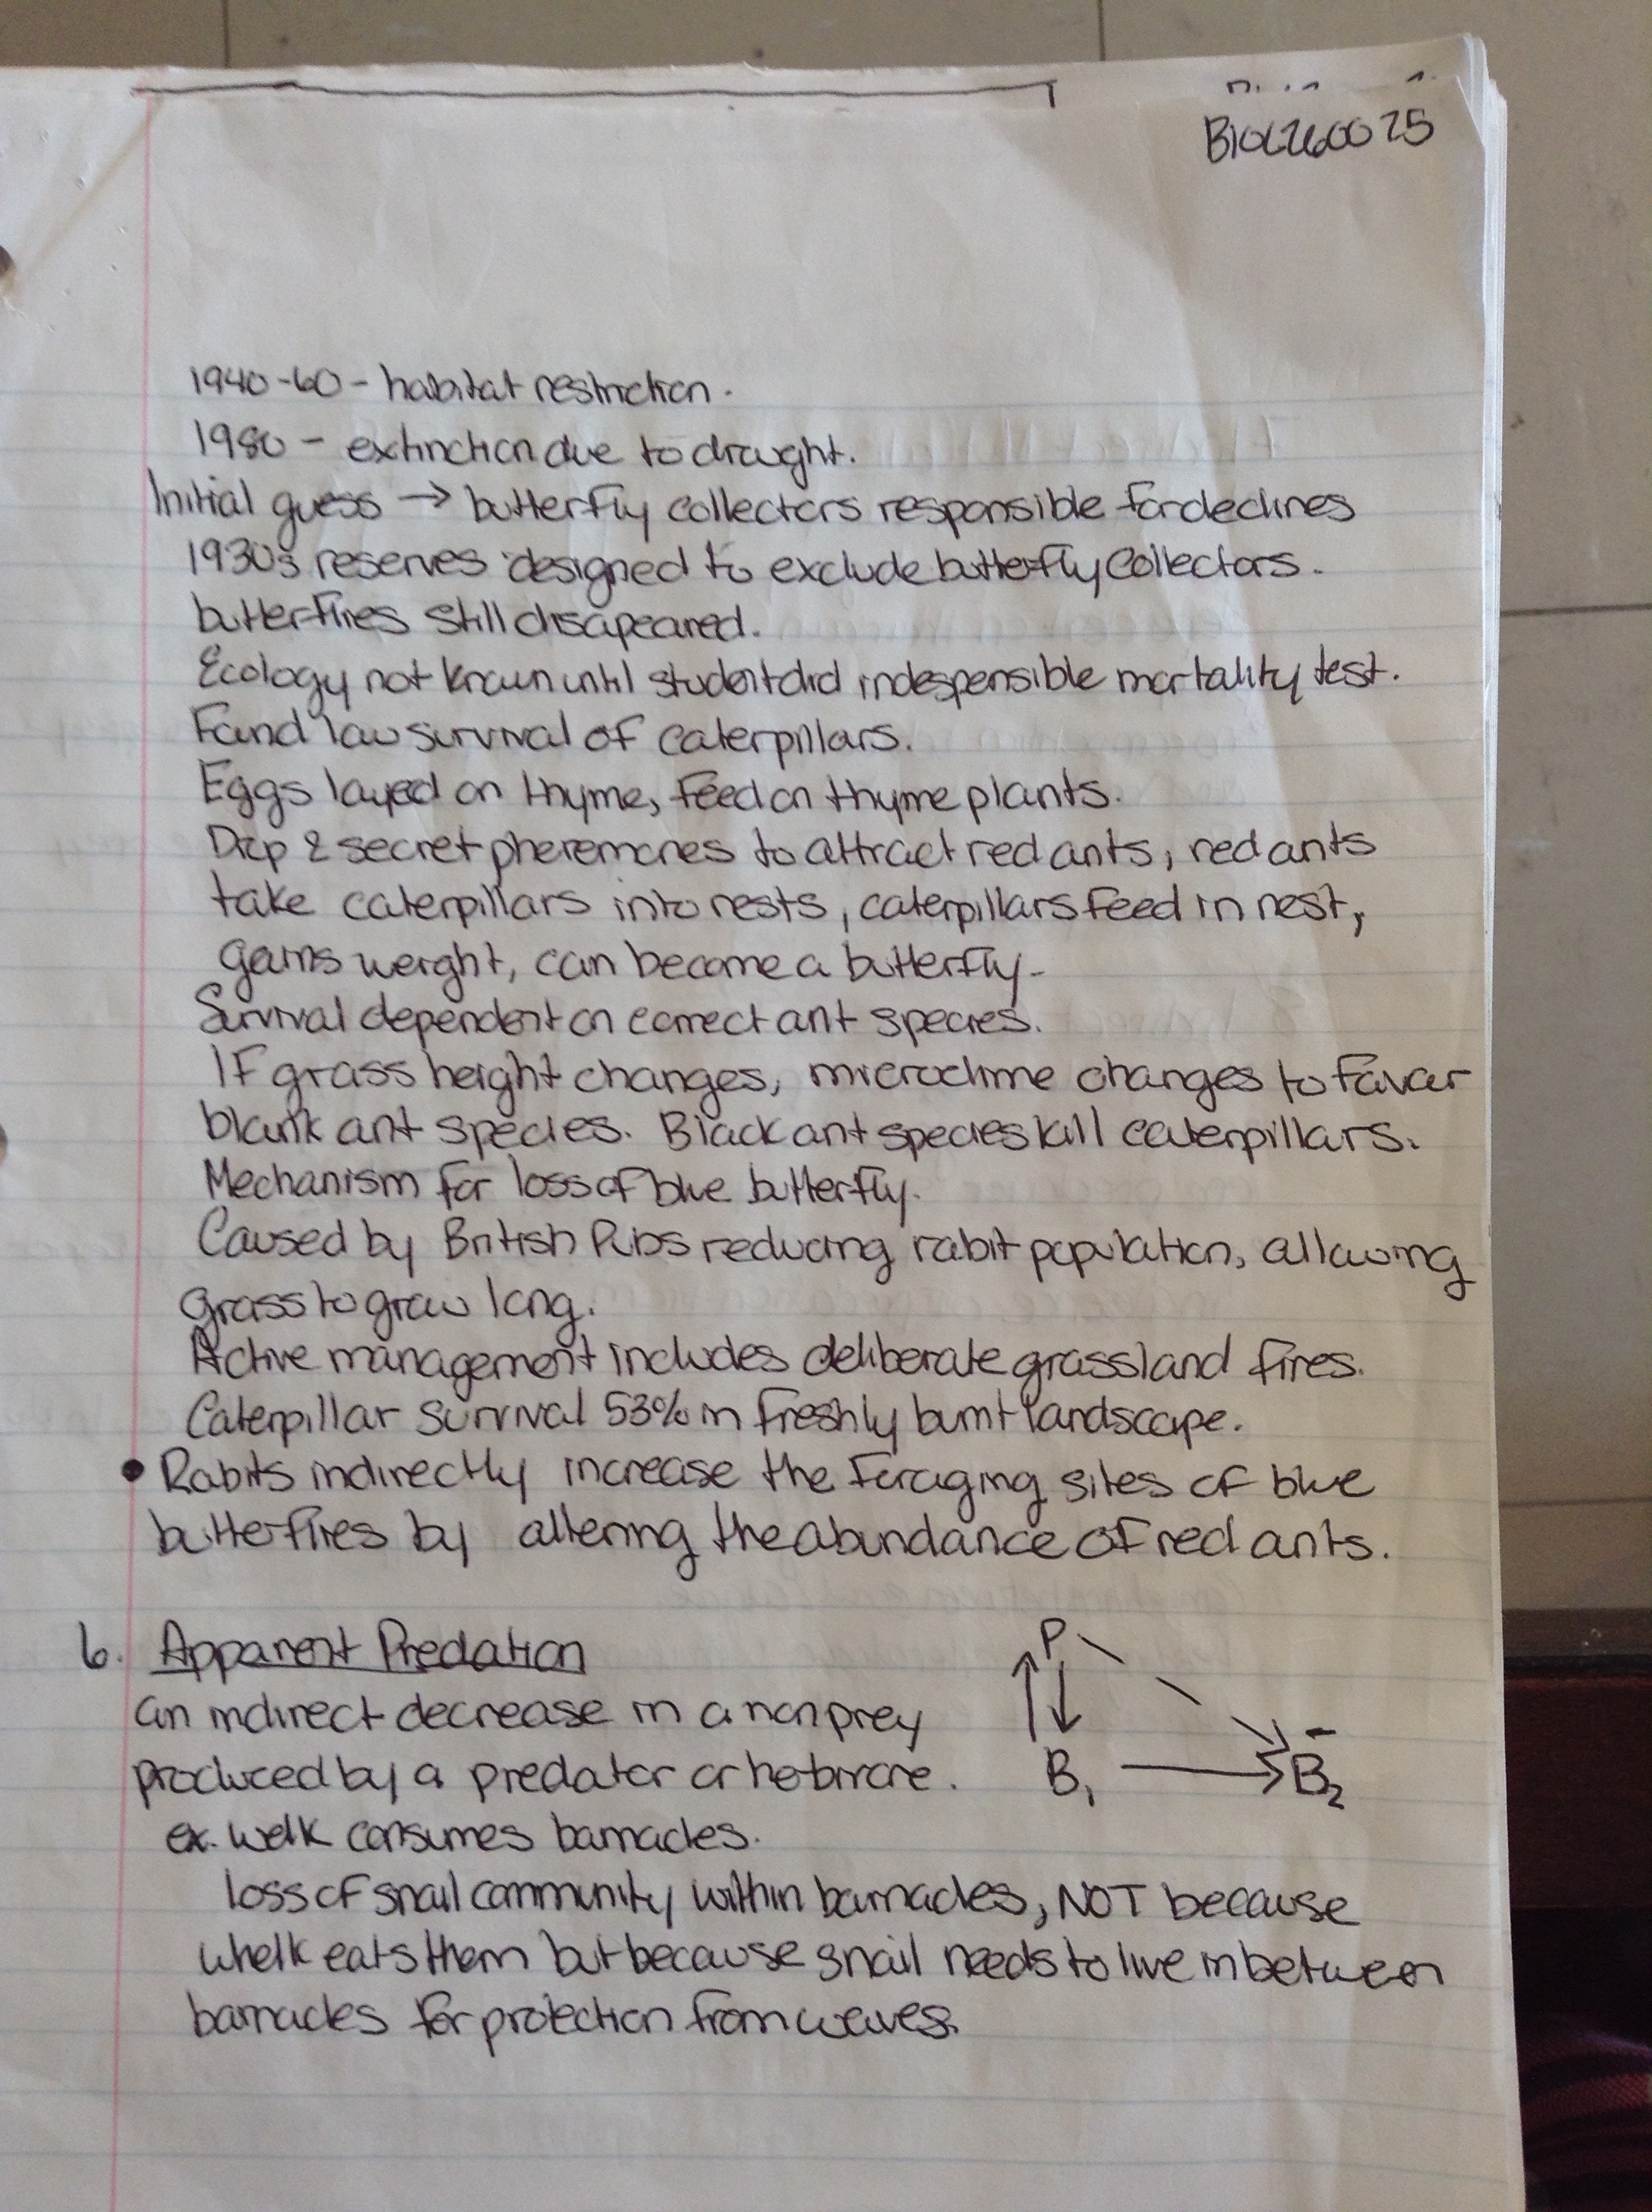 BIOL2600 25
1940-60 - habitat restriction.
1980 - extinction due to drought.
Initial guess → butterfly collectors responsible for declines
1930s reserves designed to exclude butterfly collectors.
butterflies still disapeared.
Ecology not known until student did indespensible mortality test.
Found low survival of caterpillars.
Eggs layed on thyme, feed on thyme plants.
Drop & secret pheremones to attract red ants, red ants
take caterpillars into nests, caterpillars feed in nest,
gains weight, can become a butterfly.
Survival dependent on correct ant species.
If grass height changes, microclime changes to favour
blank ant species. Black ant species kill caterpillars.
Mechanism for loss of blue butterfly.
Caused by British Pubs reducing rabit population, allowing
grass to grow long.
Active management includes deliberate grassland fires.
Caterpillar survival 53% in freshly burnt landscape.
• Rabits indirectly increase the foraging sites of blue
butterflies by altering the abundance of red ants.
6. Apparent Predation
an indirect decrease in a non prey
produced by a predator or
ex. welk consumes barnacles.
loss of snail community within barnacles, NOT because
whelk eats them but because snail needs to live in between
barnacles for protection from waves.
P
B1 → B2 -